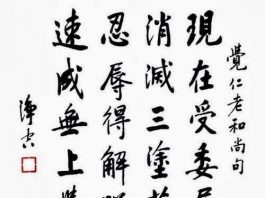 覺仁老和尚句
現在受委
消滅三塗
忍辱得解
速成無上
淨空